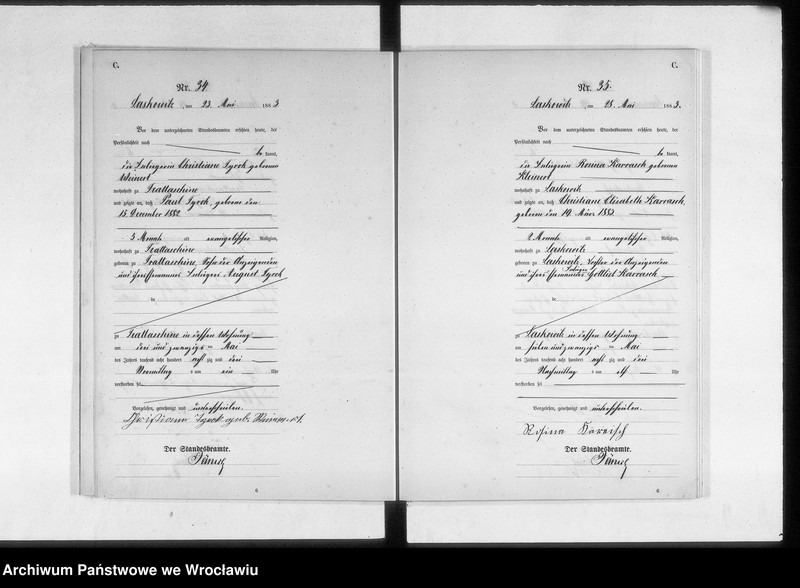 C.
Nr. 34
Laskowitz, am 23. Mai 1883
Vor dem unterzeichneten Standesbeamten erschien heute, der
Persönlichkeit nach
be kannt,
die Inliegerin Christiane Tyrok geborene
Weinert
wohnhaft zu Trattaschine
und zeigte an, daß Paul Tyrok, geboren den
15. December 1882
5 Monate alt evangelischer Religion,
wohnhaft zu Trattaschine
geboren zu Trattaschine, Sohn der Anzeigenden
und ihres Ehemannes Inlieger August Tyrok
zu Trattaschine in dessen Wohnung
am drei und zwanzigsten Mai
des Jahres tausend acht hundert acht zig und drei
Vormittag s um ein Uhr
verstorben sei
Vorgelesen, genehmigt und unterschrieben.
Christiane Tyrok geb.
Der Standesbeamte.
6
C.
Nr. 35.
Laskowitz am 28. Mai 1883.
Vor dem unterzeichneten Standesbeamten erschien heute, der
Persönlichkeit nach
be kannt,
die Inliegerin Rosina Karrasch geborene
Kleinert
wohnhaft zu Laskowitz
und zeigte an, daß Christiane Elisabeth Karrasch,
geboren den 19. März 1883
2 Monate alt evangelischer Religion,
wohnhaft zu Laskowitz
geboren zu Laskowitz, Tochter der Anzeigenden
und ihres Ehemannes Inlieger Gottlieb Karrasch
zu Laskowitz in dessen Wohnung
am sieben und zwanzigsten Mai
des Jahres tausend acht hundert acht zig und drei
Nachmittag s um elf Uhr
verstorben sei
Vorgelesen, genehmigt und unterschrieben.
Rosina
Der Standesbeamte.
6
Archiwum Państwowe we Wrocławiu